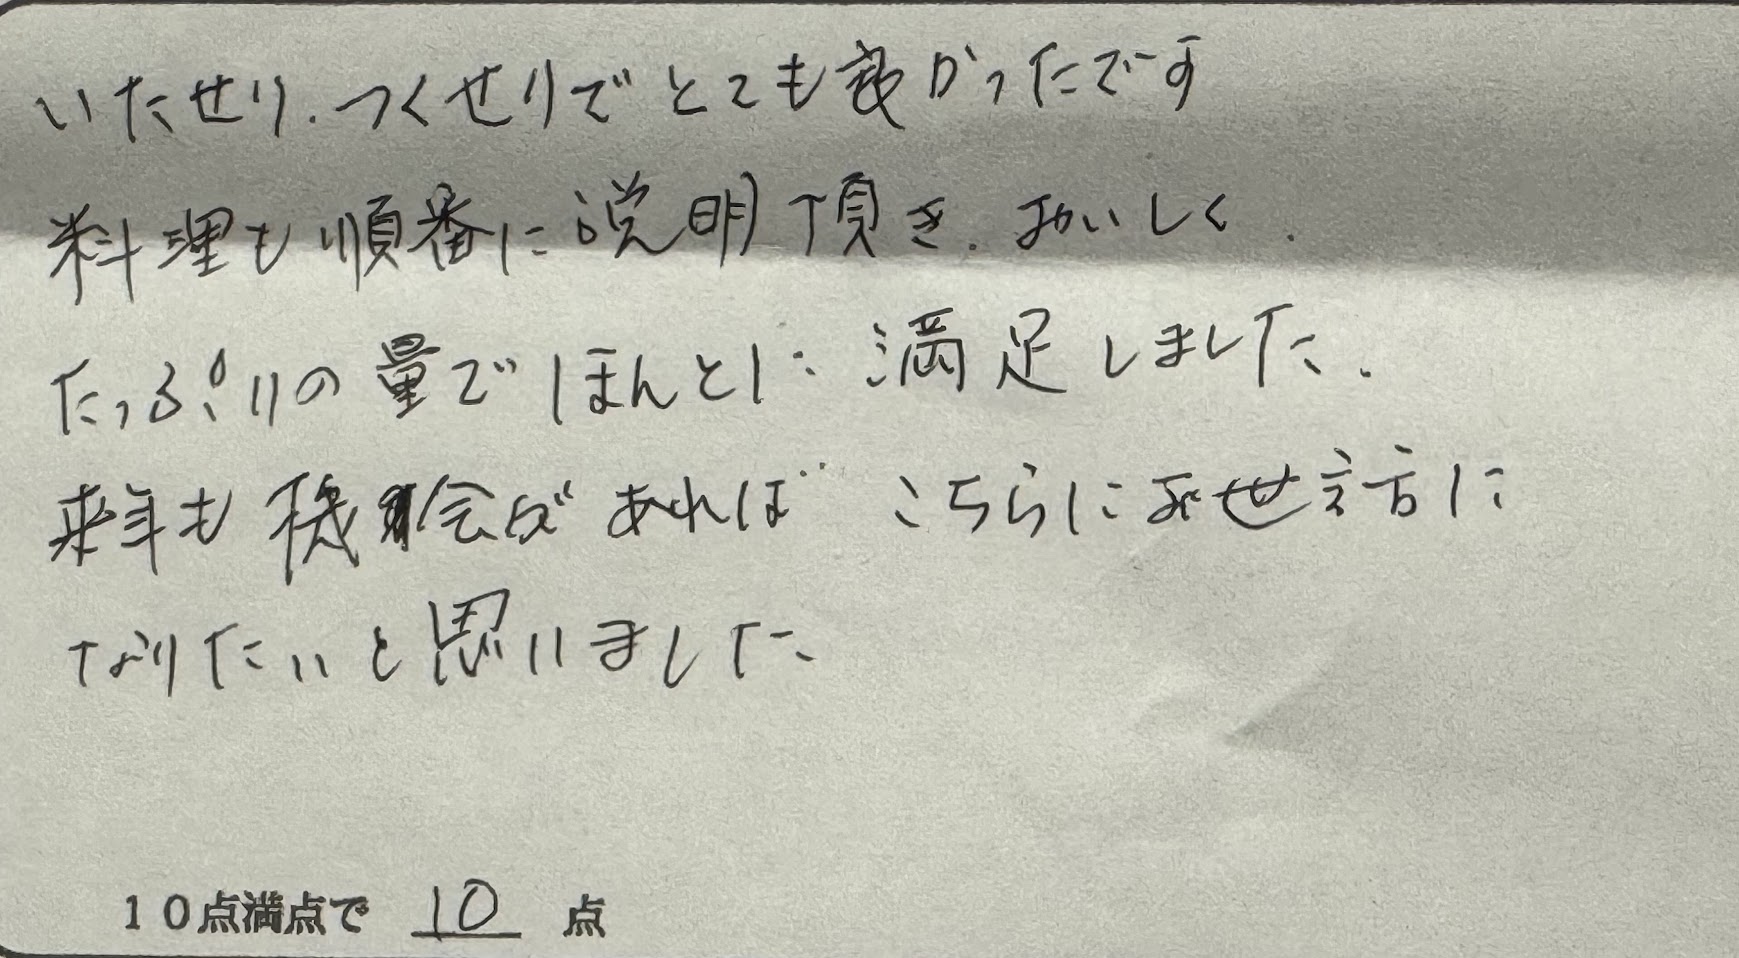 いたせり、つくせりでとても良かったです
料理も順番に説明頂き、おいしく、
たっぷりの量でほんとに満足しました。
来年も機会があればこちらに
なりたいと思いました
10点満点で 10 点